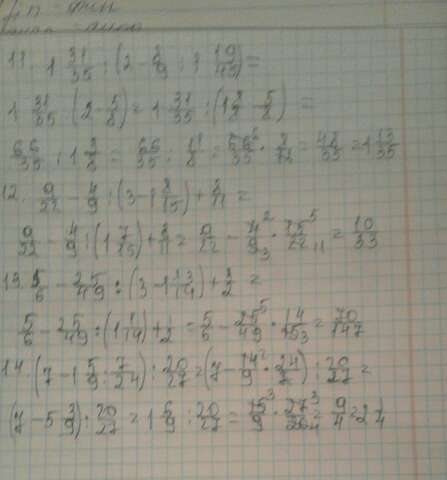 11. 1 31/35 : (2 - 5/9 : 19/45) =
1 31/35 : (2 - 5/8) = 1 31/35 : (1 8/8 - 5/8) =
66/35 : 1 3/8 = 66/35 : 11/8 = = 48/35 = 1 13/35
12. 9/22 - 4/9 : (3 - 1 8/15) + 3/11 =
9/22 - 4/9 : (1 7/15) + 3/11 = 9/22 - 4/9 · 15/22 = 10/33
13. 5/6 - 25/49 : (3 - 1 13/14) + 1/2 =
5/6 - 25/49 : (1 1/14) + 1/2 = 5/6 - 25/49 · 14/15 = 70/147
14. (7 - 1 5/9 : 7/24) : 20/27 = (7 - 14/9 · 24/7) : 20/27 =
(7 - 5 3/9) : 20/27 = 1 6/9 : 20/27 = 15/9 · 27/20 = 9/4 = 2 1/4